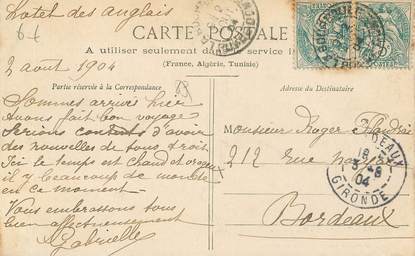 Hotel des anglais
CARTE POSTALE
A utiliser seulement dans le service
(France, Algérie, Tunisie)
2 aout 1904
Partie réservée à la Correspondance
Adresse du Destinataire
Sommes arrivés hier
Avons fait bon voyage
Serions contents d'avoir
des nouvelles de tous trois
Ici le temps est chaud et orageux
il y beaucoup de monde
en ce moment
Vous embrassons tous
bien affectueusement
Gabrielle
Monsieur Roger
212 Rue
Bordeaux
DEAUX
3 - 8
04
GIRONDE